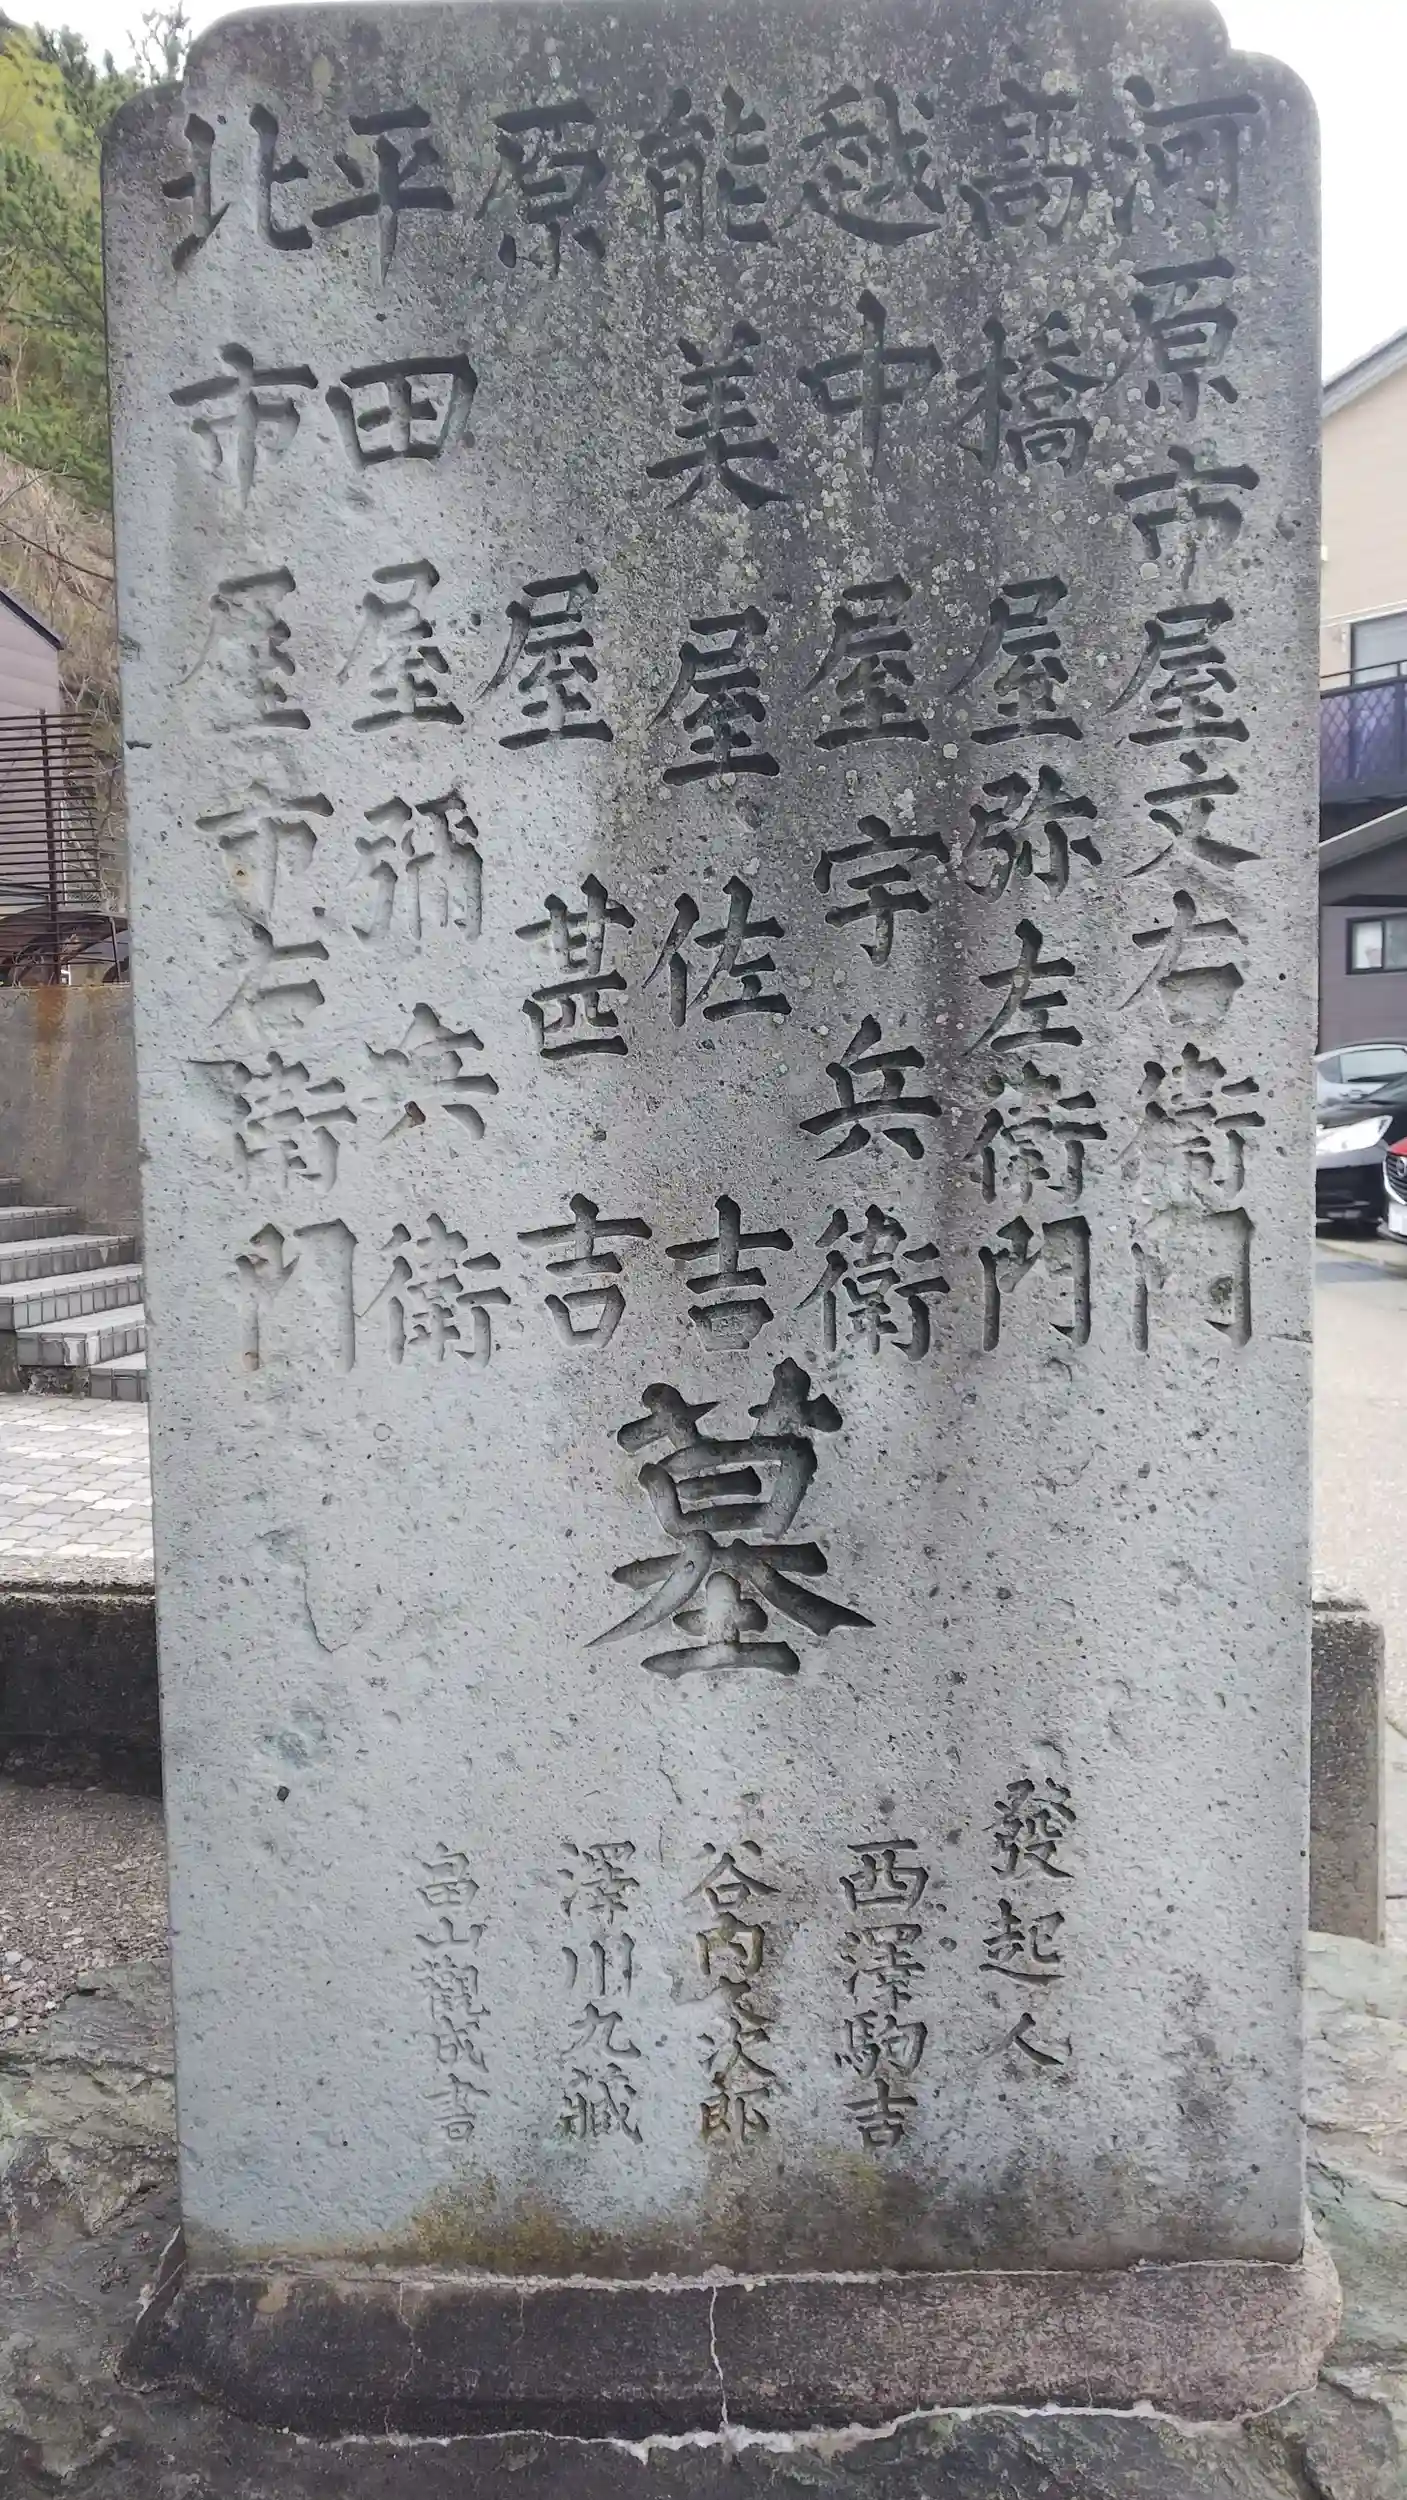 河原市屋文右衛門
高橋屋弥左衛門
越中屋宇兵衛
能美屋佐吉
原屋甚吉
平田屋彌兵衛
北市屋市右衛門
墓
發起人
西澤駒吉
谷内久次郎
澤川九藏
畠山觀成書